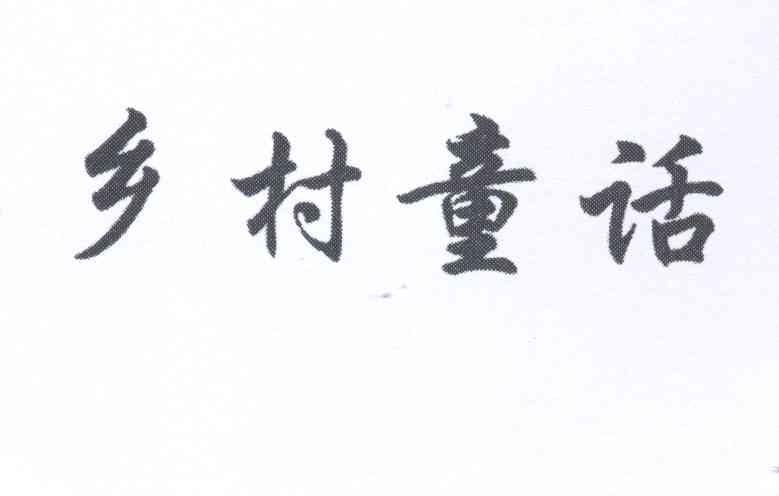 乡村童话